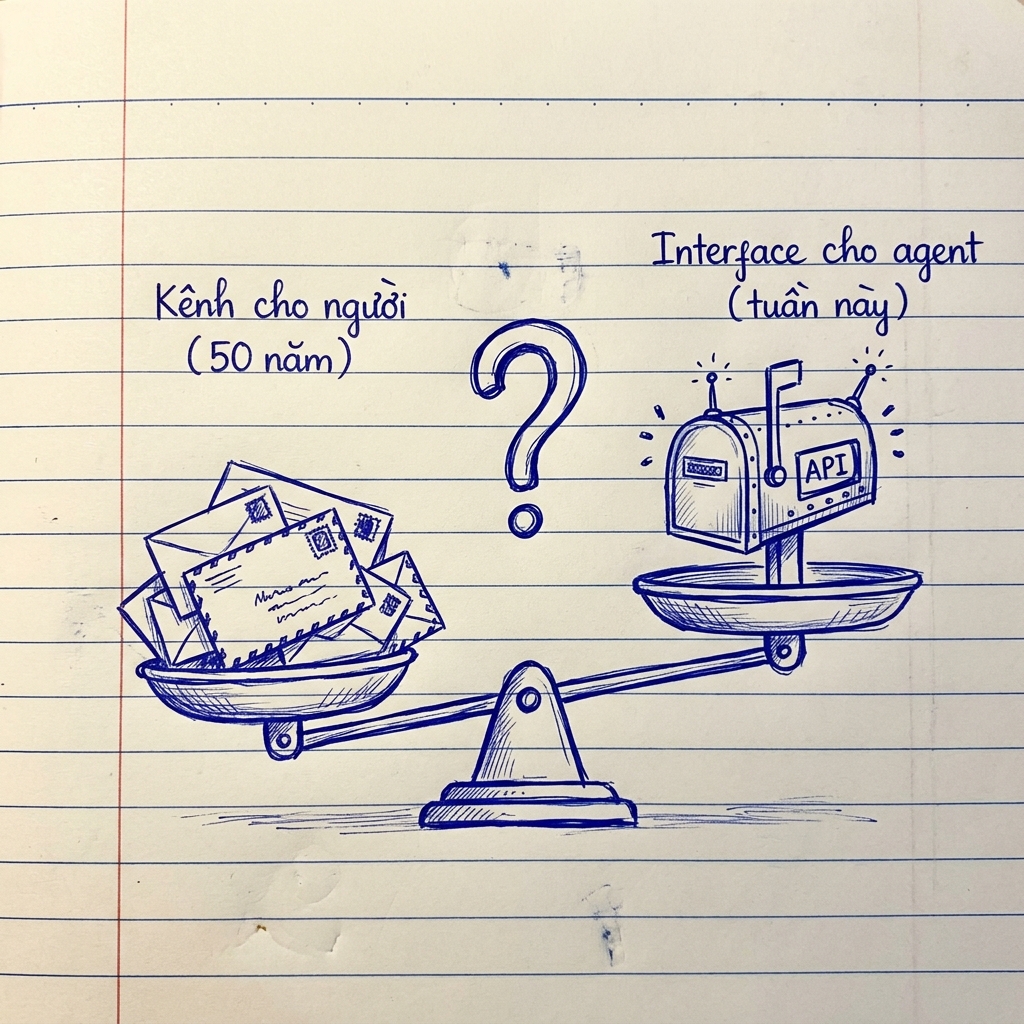 Kênh cho người
(50 năm)
Interface cho agent
(tuần này)
API